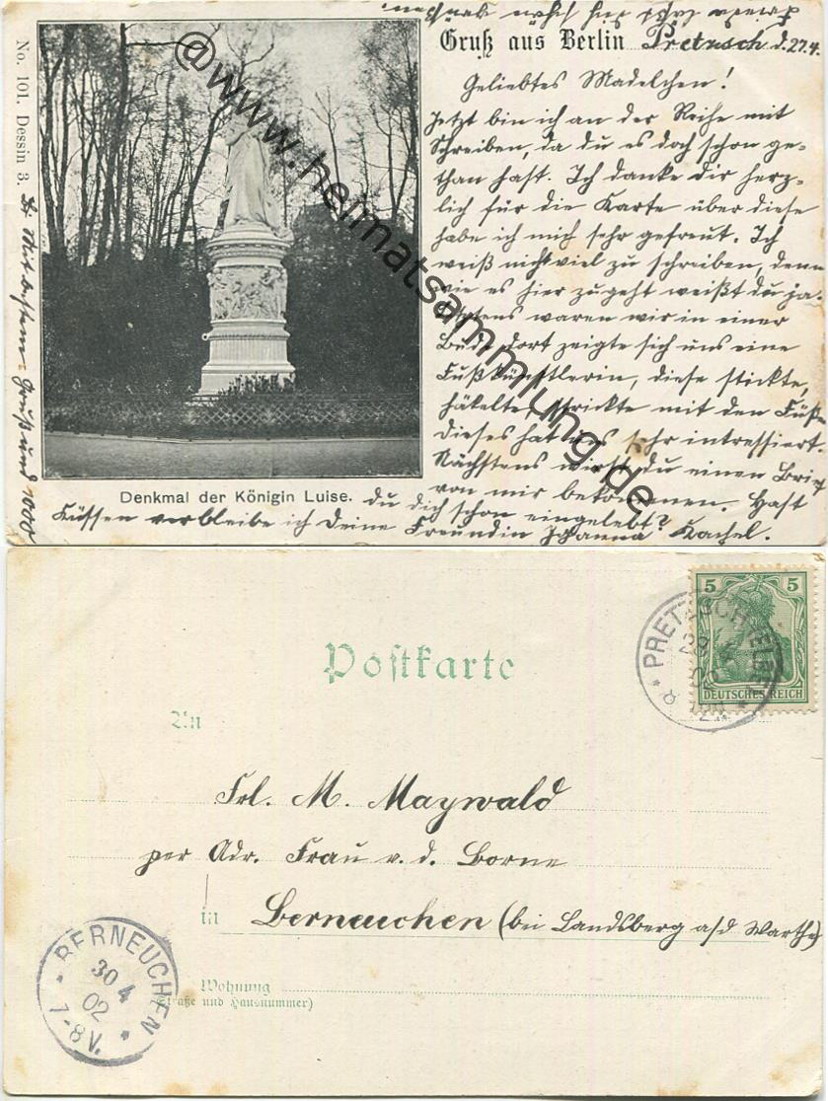 Gruß aus Berlin Pretzsch d. 27.4.
Geliebtes Mädelchen!
Jetzt bin ich an der Reihe mit
Schreiben, da du es doch schon ge-
than hast. Ich danke dir herz-
lich für die Karte über diese
habe ich mich sehr gefreut. Ich
weiß nicht viel zu schreiben, denn
wie es hier zugeht weißt du ja.
waren wir in einer
Bude dort zeigte sich uns eine
Fußkünstlerin, diese stickte,
häkelte, strickte mit den Füßen
dieses hat uns sehr intressiert.
Nächstens wirst du einen Brief
von mir bekommen. Hast
du dich schon eingelebt?
Mit bestem Gruß und 1000
Küssen verbleibe ich Deine Freundin Johanna Kachel.
No. 101. Dessin 3.
Denkmal der Königin Luise.
@www.heimatsammlung.de
Postkarte
An
Frl. M. Maywald
per Adr. Frau v. d. Borne
in Berneuchen (bei Landsberg a/d Warthe)
Wohnung
(Straße und Hausnummer)
5 5
DEUTSCHES REICH
PRETZSCH (ELBE)
BERNEUCHEN
30 4
02
7-8 V.